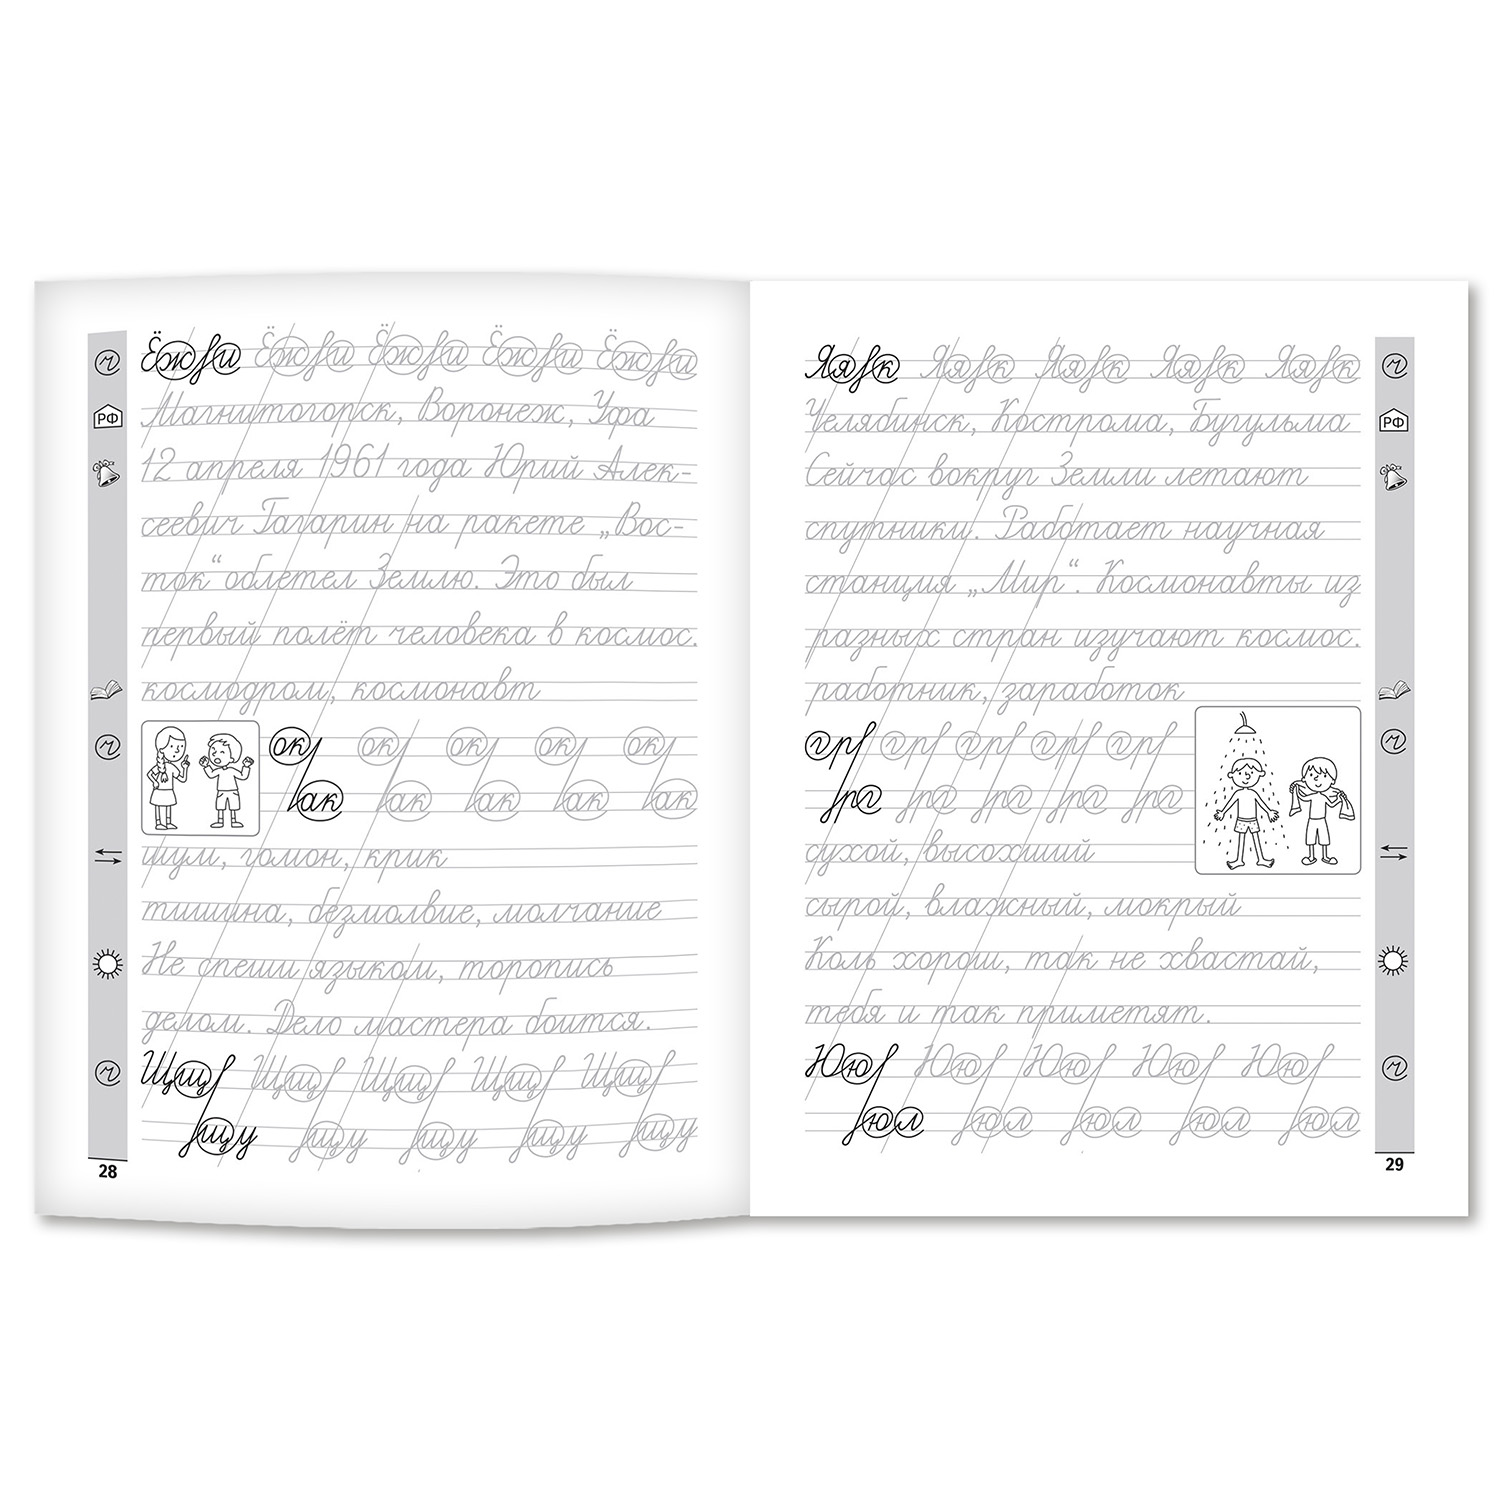 Ёжби Ёжби Ёжби Ёжби Ёжби
РФ
Магнитогорск, Воронеж, Уфа
12 апреля 1961 года Юрий Алек-
сеевич Гагарин на ракете „Вос-
ток“ облетел Землю. Это был
первый полёт человека в космос.
космодром, космонавт
ок ок ок ок ок
ак ак ак ак ак
шум, гомон, крик
тишина, безмолвие, молчание
Не спеши языком, торопись
делом. Дело мастера боится.
Щщ Щщ Щщ Щщ Щщ
щу щу щу щу щу
28
Яя к Яя к Яя к Яя к Яя к
РФ
Челябинск, Кострома, Бугульма
Сейчас вокруг Земли летают
спутники. Работает научная
станция „Мир“. Космонавты из
разных стран изучают космос.
работник, заработок
гр гр гр гр гр
рг рг рг рг рг
сухой, высохший
сырой, влажный, мокрый
Коль хорош, так не хвастай,
тебя и так приметят.
Юю Юю Юю Юю Юю
юл юл юл юл юл
29